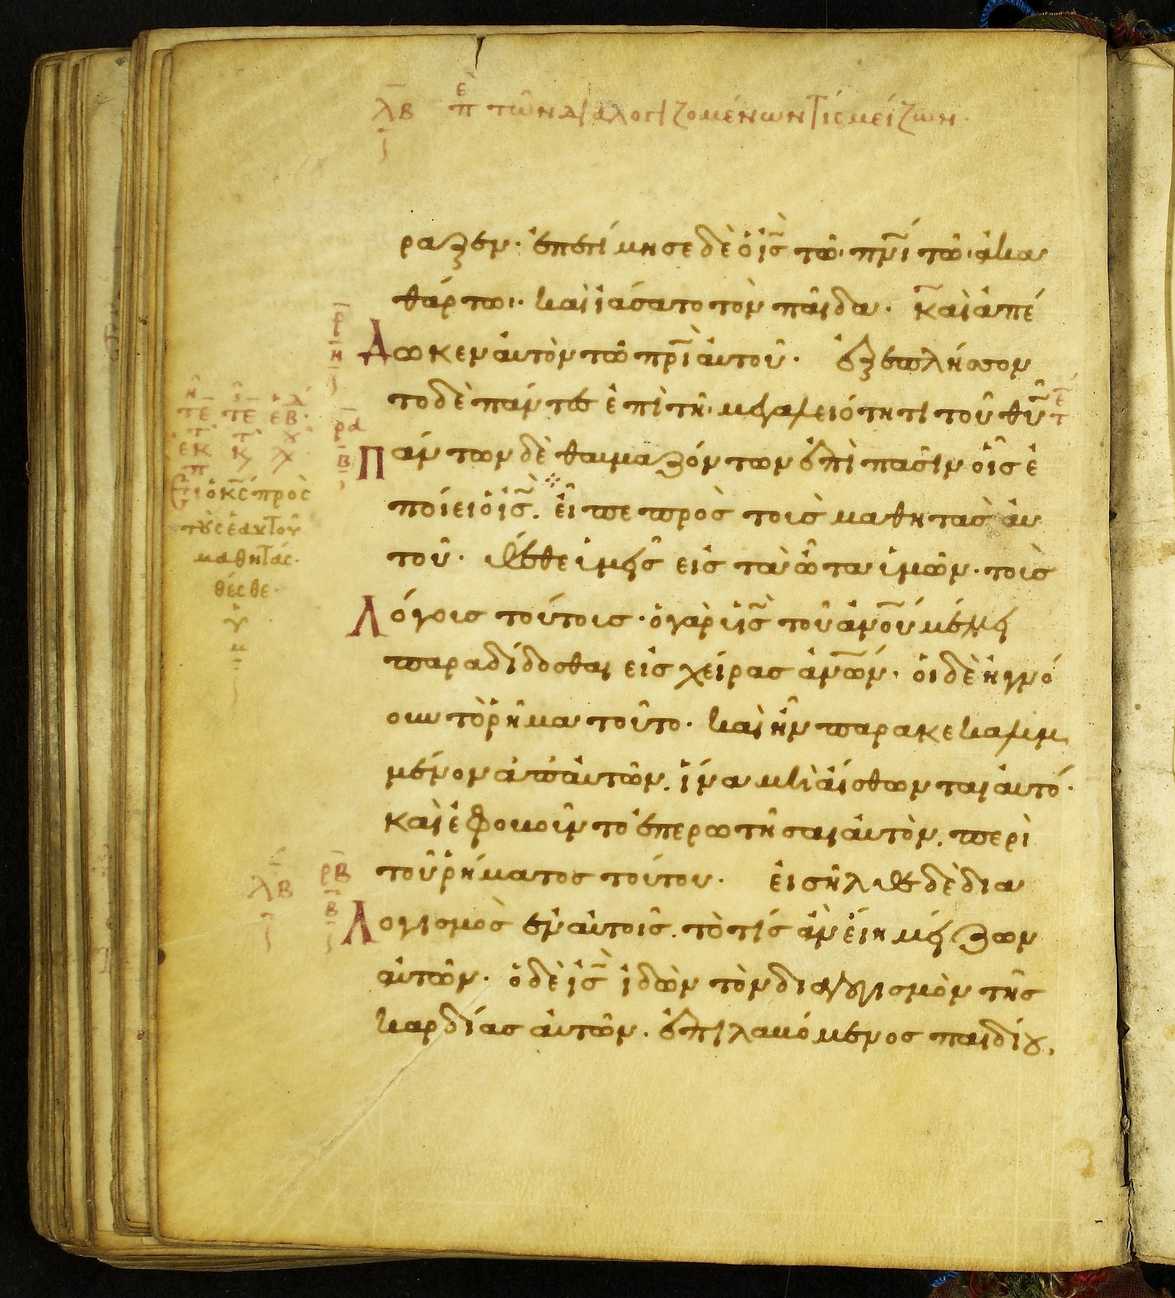 λβ επ τῶν διαλογιζομένων τίς μείζων.
ραξεν· ἐπετίμησε δὲ ὁ ις τῶ πνι τῶ ἀκα
θάρτω· καὶ ἰάσατο τὸν παῖδα· καὶ ἀπέ
δωκεν αὐτὸν τῶ πρι αὐτοῦ· ἐξεπλήσσον
το δὲ πάντες ἐπὶ τῆ μεγαλειότητι τοῦ θυ
Πάντων δὲ θαυμαζόντων ἐπὶ πᾶσιν οἷς ἐ
ποίει ὁ ις. εἶπε πρὸς τοὺς μαθητὰς αὐ
τοῦ· θέσθε ὑμεῖς εἰς τὰ ὦτα ὑμῶν· τοὺς
λόγους τούτους· ὁ γὰρ υς τοῦ ανου μέλλει
παραδίδοσθαι εἰς χεῖρας ανων· οἱ δὲ ἠγνό
ουν τὸ ῥῆμα τοῦτο· καὶ ἦν παρακεκαλυμ
μένον ἀπ' αὐτῶν. ἵνα μὴ αἴσθωνται αὐτό·
καὶ ἐφοβοῦντο ἐπερωτῆσαι αὐτὸν. περὶ
τοῦ ῥήματος τούτου· εἰσῆλθε δὲ δια
λογισμὸς ἐν αὐτοῖς. τὸ τίς ἂν εἴη μείζων
αὐτῶν· ὁ δὲ ις ἰδὼν τὸν διαλογισμὸν τῆς
καρδίας αὐτῶν. ἐπιλαβόμενος παιδίου,
ρβ
β
λβ
ὁ κς πρὸς
τοὺς ἑαυτοῦ
μαθητάς·
θέσθε·